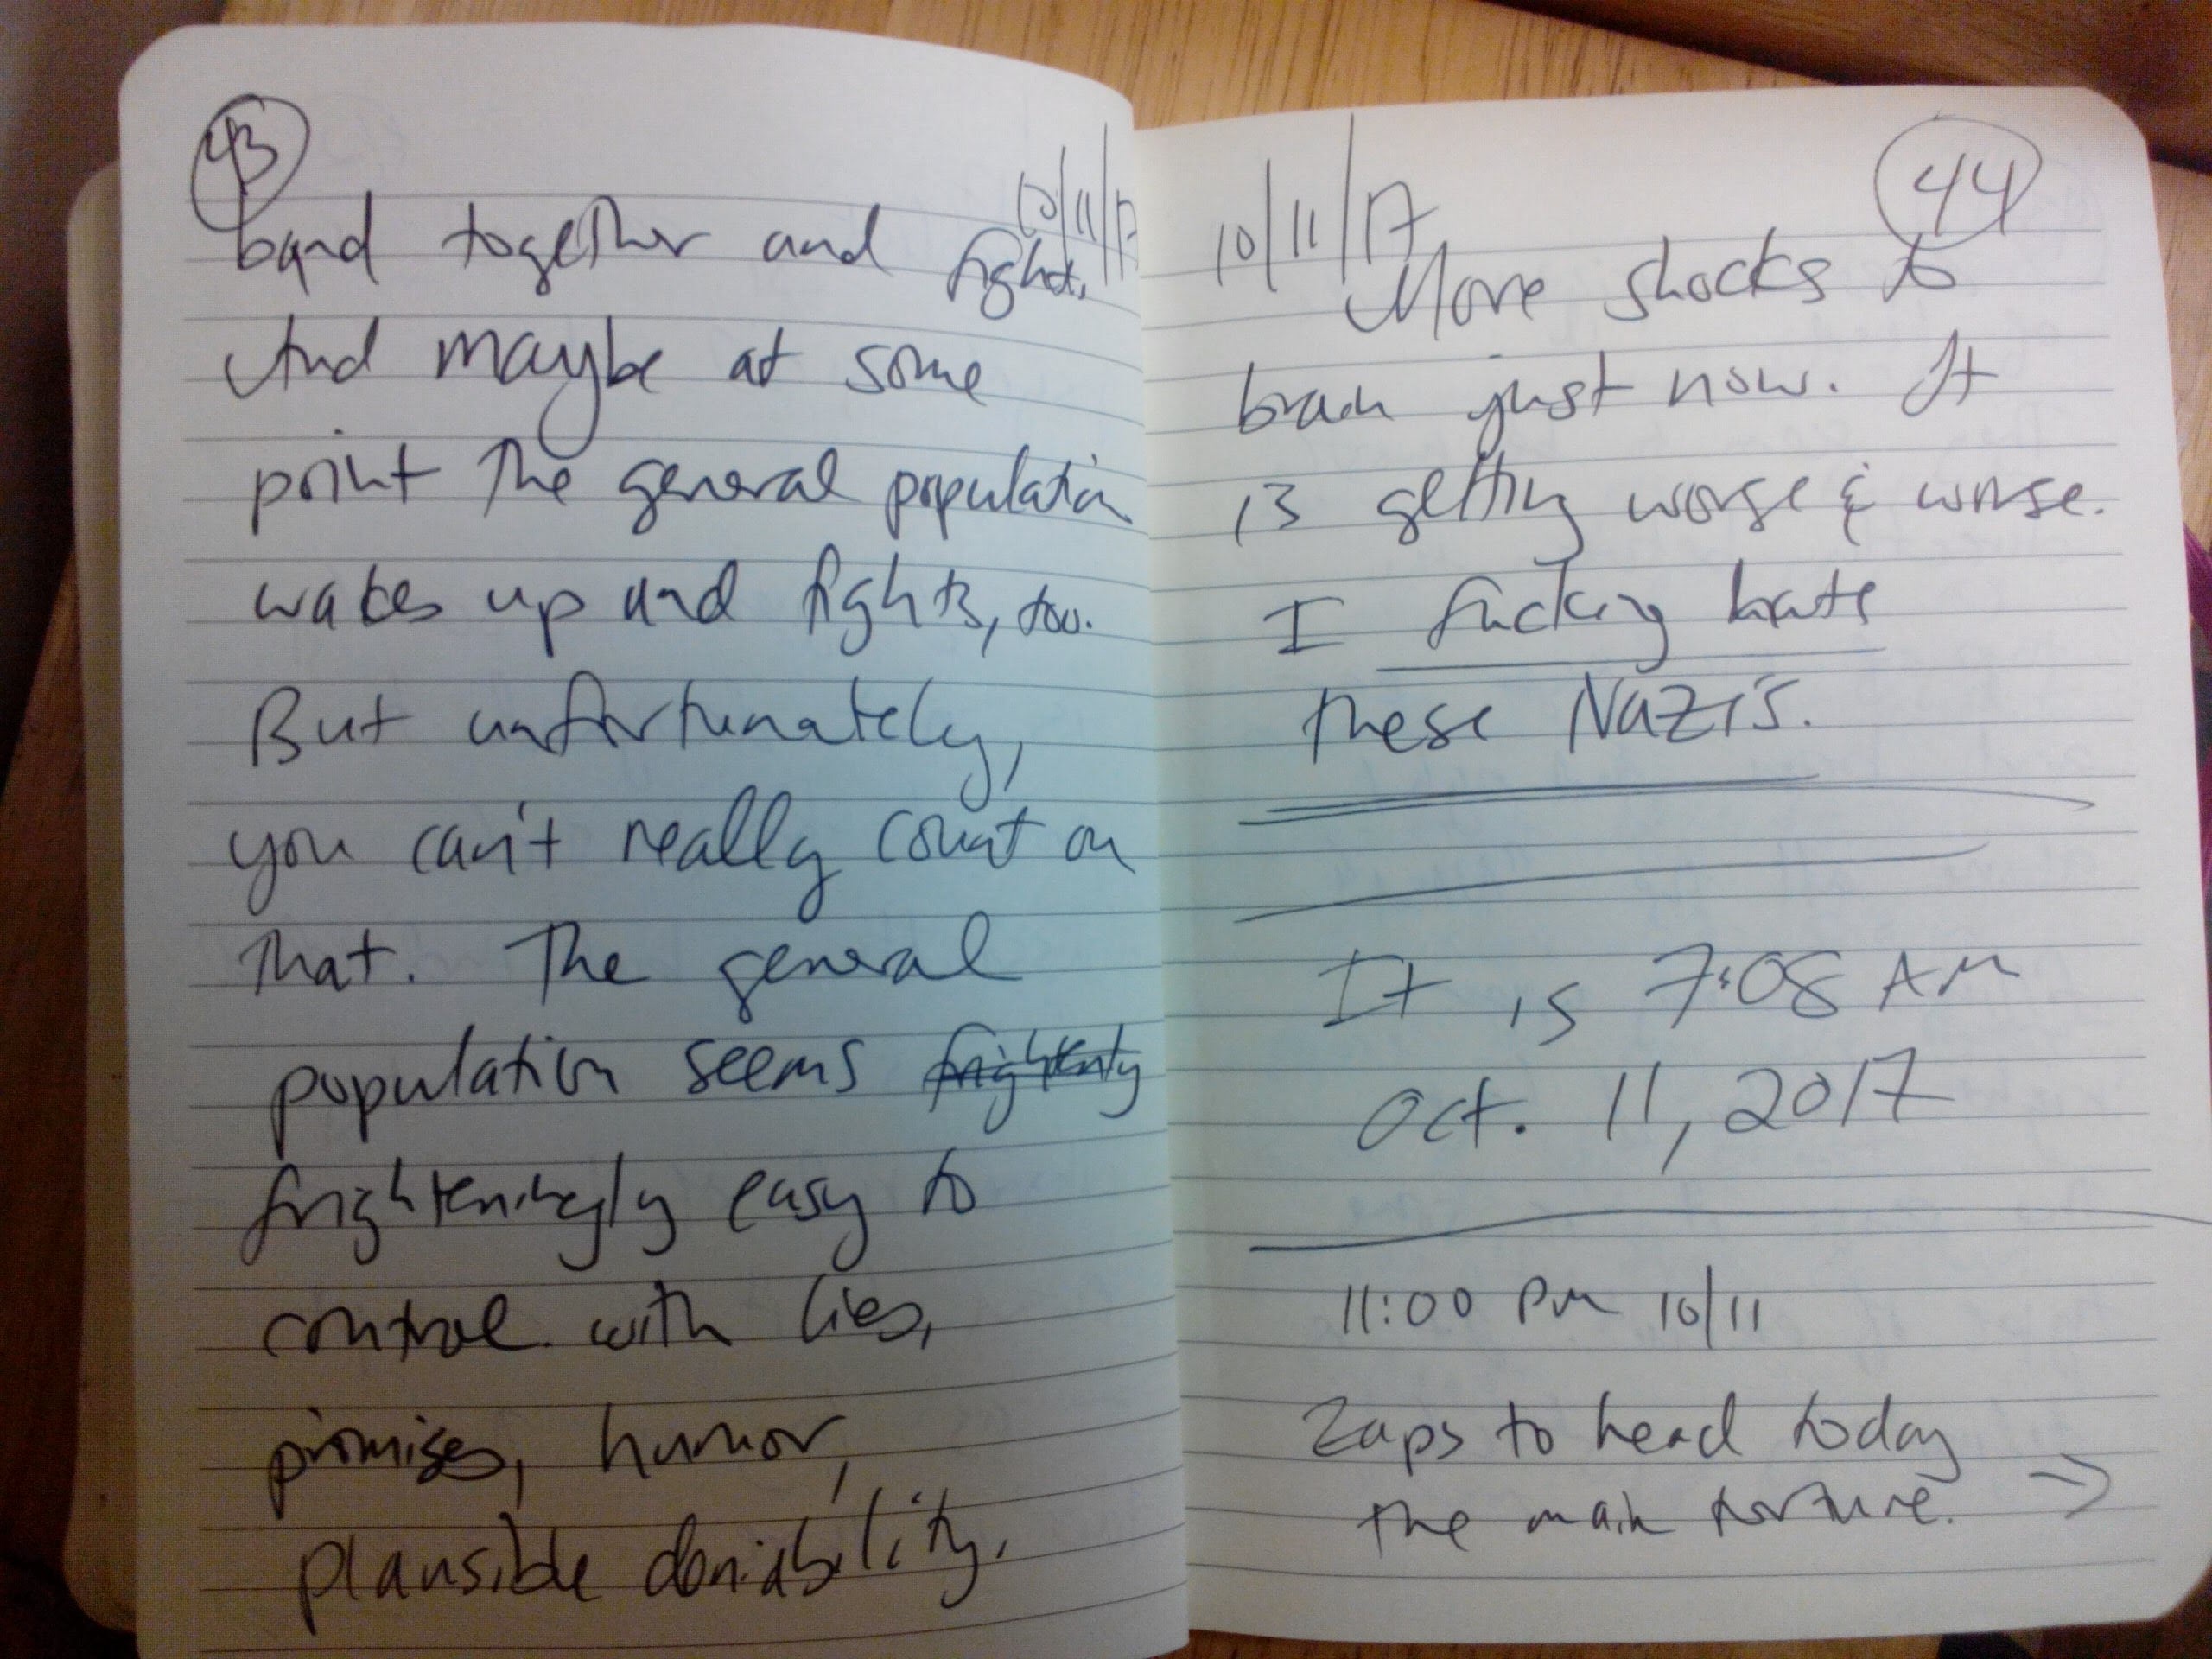 43
10/11/17
band together and fight.
And maybe at some
point the general population
wakes up and fights, too.
But unfortunately,
you can't really count on
that. The general
population seems frightenly
frighteningly easy to
control with lies,
promises, humor,
plausible deniability.
10/11/17
44
More shocks to
brain just now. It
is getting worse & worse.
I fucking hate
these Nazis.
It is 7:08 AM
Oct. 11, 2017
11:00 PM 10/11
Zaps to head today
the main torture. →